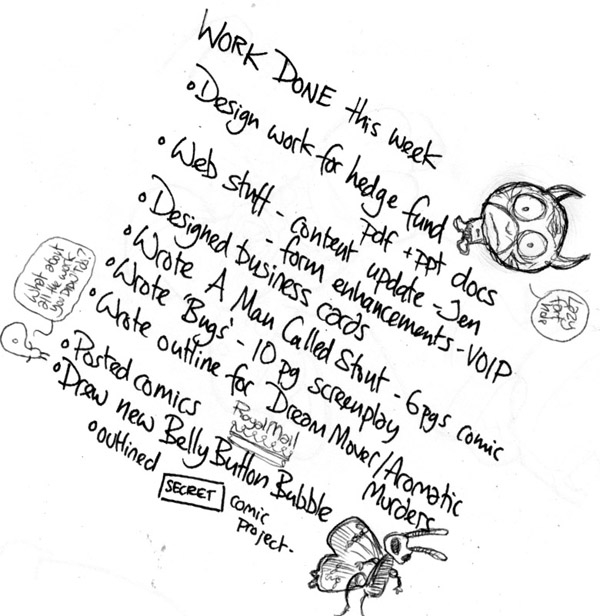 WORK DONE this week
• Design work for hedge fund
pdf + ppt docs
• Web stuff - content update - Jen
- form enhancements - VOIP
• Designed business cards
• Wrote A Man Called Stout - 6pgs comic
• Wrote 'Bugs' - 10 pg screenplay
• Wrote outline for Dream Mover/Aromatic
Murders
• Posted comics
Royal Mail
• Drew new Belly Button Bubble
• outlined SECRET comic
project -
What about
all the work
you
Lazy